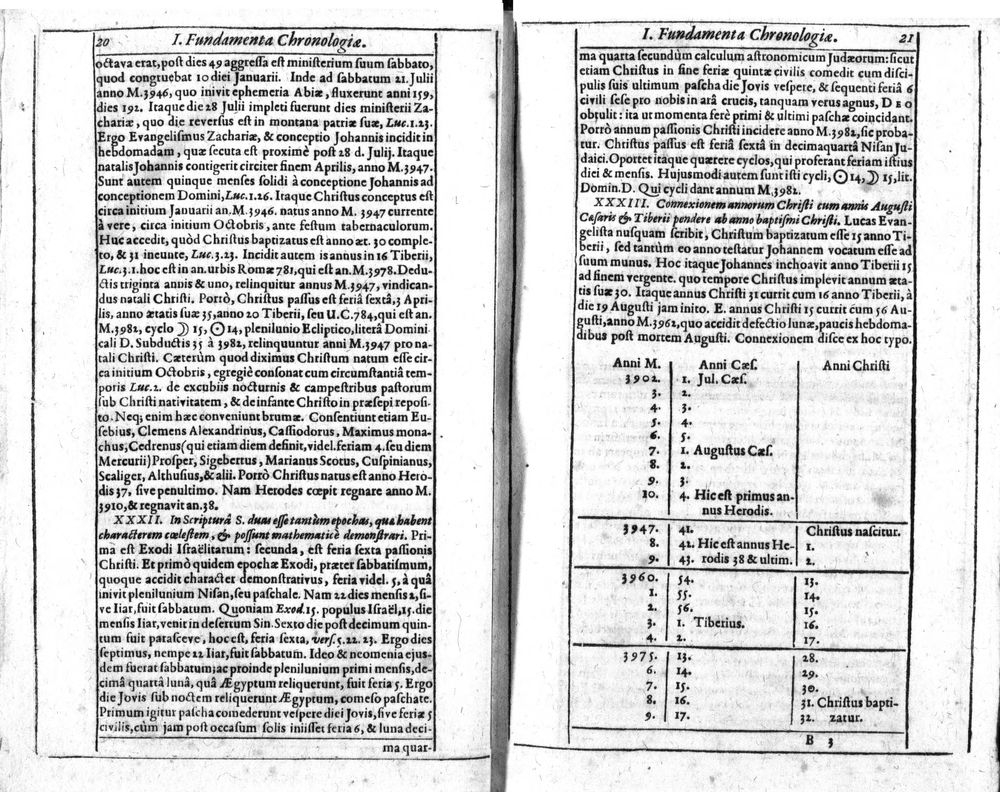 20 I. Fundamenta Chronologiæ.
octava erat, post dies 49 aggressa est ministerium suum sabbato,
quod congruebat 10 diei Januarii. Inde ad sabbatum 21. Julii
anno M.3946, quo inivit ephemeria Abiæ, fluxerunt anni 159,
dies 192. Itaque die 28 Julii impleti fuerunt dies ministerii Za-
chariæ, quo die reversus est in montana patriæ suæ, Luc.1.23.
Ergo Evangelismus Zachariæ, & conceptio Johannis incidit in
hebdomadam, quæ secuta est proximè post 28 d. Julij. Itaque
natalis Johannis contigerit circiter finem Aprilis, anno M.3947.
Sunt autem quinque menses solidi à conceptione Johannis ad
conceptionem Domini, Luc.1.26. Itaque Christus conceptus est
circa initium Januarii an.M.3946. natus anno M. 3947 currente
à vere, circa initium Octobris, ante festum tabernaculorum.
Huc accedit, quòd Christus baptizatus est anno æt. 30 comple-
to, & 31 ineunte, Luc.3.23. Incidit autem is annus in 16 Tiberii,
Luc.3.1. hoc est in an.urbis Romæ 781, qui est an.M.3978. Dedu-
ctis triginta annis & uno, relinquitur annus M.3947, vindican-
dus natali Christi. Porrò, Christus passus est feriâ sextâ, 3 Apri-
lis, anno ætatis suæ 35, anno 20 Tiberii, seu U.C.784, qui est an.
M.3982, cyclo ☽ 15, ☉ 14, plenilunio Ecliptico, literâ Domini
cali D. Subductis 35 à 3982, relinquuntur anni M.3947 pro na-
tali Christi. Cæterùm quod diximus Christum natum esse cir-
ca initium Octobris, egregiè consonat cum circumstantiâ tem-
poris Luc.2. de excubiis nocturnis & campestribus pastorum
sub Christi nativitatem, & de infante Christo in præsepi reposi-
to. Neq; enim hæc conveniunt brumæ. Consentiunt etiam Eu-
sebius, Clemens Alexandrinus, Cassiodorus, Maximus mona-
chus, Cedrenus (qui etiam diem definit, videl. feriam 4. seu diem
Mercurii) Prosper, Sigebertus, Marianus Scotus, Cuspinianus,
Scaliger, Althusius, & alii. Porrò Christus natus est anno Hero-
dis 37, sive penultimo. Nam Herodes cœpit regnare anno M.
3910, & regnavit an.38.
XXXII. In Scripturâ S. duas esse tantùm epochas, quæ habent
characterem cœlestem, & possunt mathematicè demonstrari. Pri-
ma est Exodi Israëlitarum: secunda, est feria sexta passionis
Christi. Et primò quidem epochæ Exodi, præter sabbatismum,
quoque accidit character demonstrativus, feria videl. 5, à quâ
inivit plenilunium Nisan, seu paschale. Nam 22 dies mensis 2, si-
ve Iiar, fuit sabbatum. Quoniam Exod.15. populus Israël, 15. die
mensis Iiar, venit in desertum Sin. Sexto die post decimum quin-
tum fuit parasceve, hoc est, feria sexta, vers.5.22.23. Ergo dies
septimus, nempe 22 Iiar, fuit sabbatum. Ideo & neomenia ejus-
dem fuerat sabbatum; ac proinde plenilunium primi mensis, de-
cimâ quartâ lunâ, quâ Ægyptum reliquerunt, fuit feria 5. Ergo
die Jovis sub noctem reliquerunt Ægyptum, comeso paschate.
Primum igitur pascha comederunt vespere diei Jovis, sive feriæ 5
civilis, cùm jam post occasum solis iniisset feria 6, & luna deci-
ma quar-
I. Fundamenta Chronologiæ. 21
ma quarta secundùm calculum astronomicum Judæorum: sicut
etiam Christus in fine feriæ quintæ civilis comedit cum disci-
pulis suis ultimum pascha die Jovis vespere, & sequenti feriâ 6
civili sese pro nobis in arâ crucis, tanquam verus agnus, DEO
obtulit: ita ut momenta ferè primi & ultimi paschæ coincidant.
Porrò annum passionis Christi incidere anno M.3982, sic proba-
tur. Christus passus est feriâ sextâ in decimaquartâ Nisan Ju-
daici. Oportet itaque quærere cyclos, qui proferant feriam istius
diei & mensis. Hujusmodi autem sunt isti cycli, ☉14, ☽ 15, lit.
Domin. D. Qui cycli dant annum M.3982.
XXXIII. Connexionem annorum Christi cum annis Augusti
Cæsaris & Tiberii pendere ab anno baptismi Christi. Lucas Evan-
gelista nusquam scribit, Christum baptizatum esse 15 anno Ti-
berii, sed tantùm eo anno testatur Johannem vocatum esse ad
suum munus. Hoc itaque Johannes inchoavit anno Tiberii 15
ad finem vergente. quo tempore Christus implevit annum æta-
tis suæ 30. Itaque annus Christi 31 currit cum 16 anno Tiberii, à
die 19 Augusti jam inito. E. annus Christi 15 currit cum 56 Au-
gusti, anno M.3962, quo accidit defectio lunæ, paucis hebdoma-
dibus post mortem Augusti. Connexionem disce ex hoc typo.
Anni M. Anni Cæs. Anni Christi
3902. 1. Jul. Cæs.
3. 2.
4. 3.
5. 4.
6. 5.
7. 1. Augustus Cæs.
8. 2.
9. 3.
10. 4. Hic est primus an-
nus Herodis.
3947. 41. Christus nascitur.
8. 42. Hic est annus He- 1.
9. 43. rodis 38 & ultim. 2.
3960. 54. 13.
1. 55. 14.
2. 56. 15.
3. 1. Tiberius. 16.
4. 2. 17.
3975. 13. 28.
6. 14. 29.
7. 15. 30.
8. 16. 31. Christus bapti-
9. 17. 32. zatur.
B 3